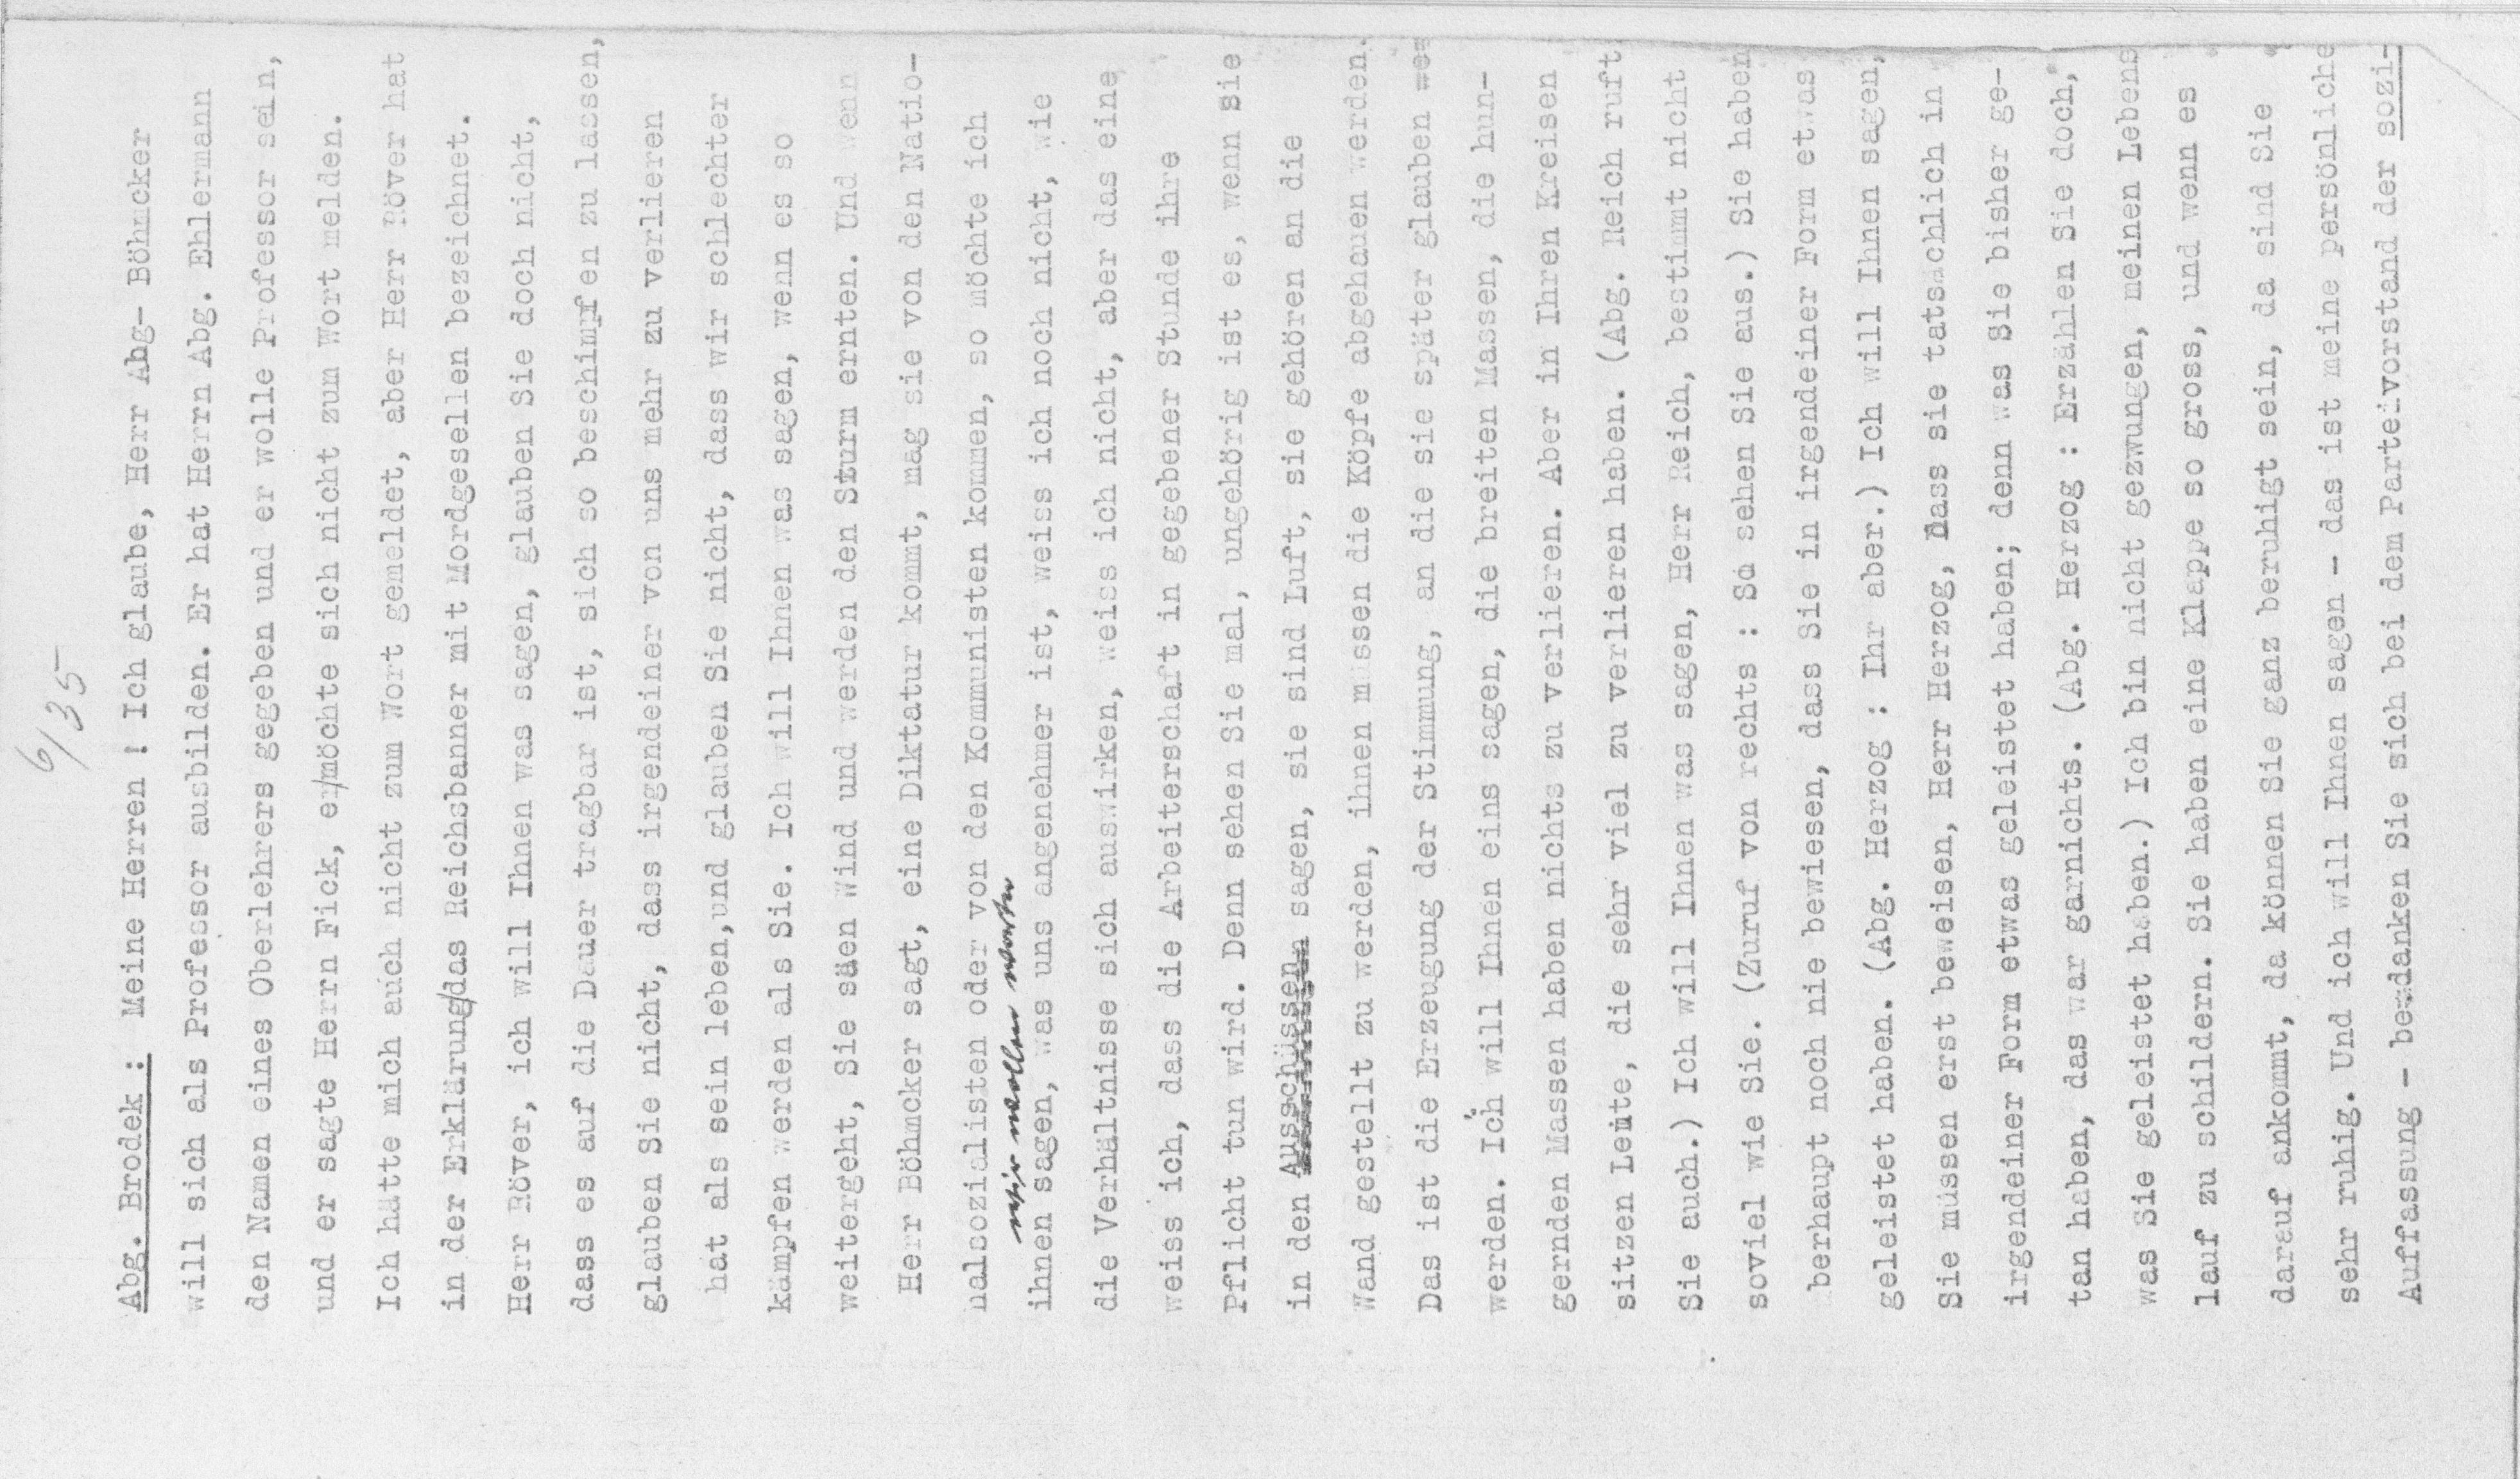 6/35
Abg. Brodek : Meine Herren ! Ich glaube, Herr Abg- Böhmcker
will sich als Professor ausbilden. Er hat Herrn Abg. Ehlermann
den Namen eines Oberlehrers gegeben und er wolle Professor sein,
und er sagte Herrn Fick, er/möchte sich nicht zum Wort melden.
Ich hätte mich auch nicht zum Wort gemeldet, aber Herr Röver hat
in der Erklärung/das Reichsbanner mit Mordgesellen bezeichnet.
Herr Röver, ich will Ihnen was sagen, glauben Sie doch nicht,
dass es auf die Dauer tragbar ist, sich so beschimpfen zu lassen,
glauben Sie nicht, dass irgendeiner von uns mehr zu verlieren
hat als sein leben,und glauben Sie nicht, dass wir schlechter
kämpfen werden als Sie. Ich will Ihnen was sagen, wenn es so
weitergeht, Sie säen Wind und werden den Sturm ernten. Und wenn
Herr Böhmcker sagt, eine Diktatur kommt, mag sie von den Natio-
nalsozialisten oder von den Kommunisten kommen, so möchte ich
wir wollen warten
ihnen sagen, was uns angenehmer ist, weiss ich noch nicht, wie
die Verhältnisse sich auswirken, weiss ich nicht, aber das eine
weiss ich, dass die Arbeiterschaft in gegebener Stunde ihre
Pflicht tun wird. Denn sehen Sie mal, ungehörig ist es, wenn sie
in den Ausschüssen sagen, sie sind Luft, sie gehören an die
Wand gestellt zu werden, ihnen müssen die Köpfe abgehauen werden.
Das ist die Erzeugung der Stimmung, an die sie später glauben
werden. Ich will Ihnen eins sagen, die breiten Massen, die hun-
gernden Massen haben nichts zu verlieren. Aber in Ihren Kreisen
sitzen Leute, die sehr viel zu verlieren haben. (Abg. Reich ruft
Sie auch.) Ich will Ihnen was sagen, Herr Reich, bestimmt nicht
soviel wie Sie. (Zuruf von rechts : So sehen Sie aus.) Sie haben
berhaupt noch nie bewiesen, dass Sie in irgendeiner Form etwas
geleistet haben. (Abg. Herzog : Ihr aber.) Ich will Ihnen sagen,
Sie müssen erst beweisen, Herr Herzog, dass sie tatsächlich in
irgendeiner Form etwas geleistet haben; denn was Sie bisher ge-
tan haben, das war garnichts. (Abg. Herzog : Erzählen Sie doch,
was Sie geleistet haben.) Ich bin nicht gezwungen, meinen Lebens
lauf zu schildern. Sie haben eine Klappe so gross, und wenn es
darauf ankommt, da können Sie ganz beruhigt sein, da sind Sie
sehr ruhig. Und ich will Ihnen sagen - das ist meine persönliche
Auffassung - bedanken Sie sich bei dem Parteivorstand der sozi-